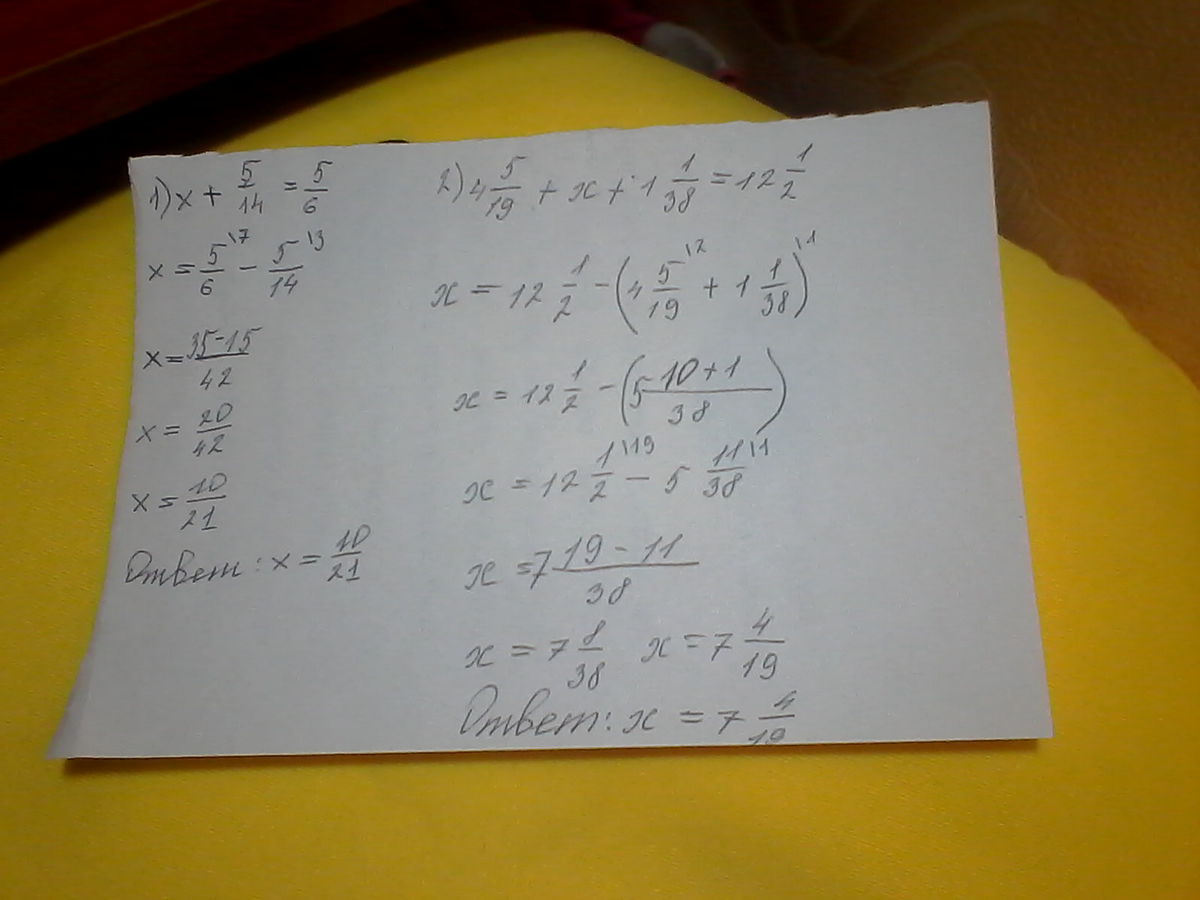 1) x + 5/14 = 5/6
x = 5/6 \7 - 5/14 \3
x = 35-15/42
x = 20/42
x = 10/21
Ответ: x = 10/21
2) 4 5/19 + x + 1 1/38 = 12 1/2
x = 12 1/2 - (4 5/19 \2 + 1 1/38) \1
x = 12 1/2 - (5 10+1/38)
x = 12 1/2 \19 - 5 11/38 \1
x = 7 19-11/38
x = 7 8/38 x = 7 4/19
Ответ: x = 7 4/19